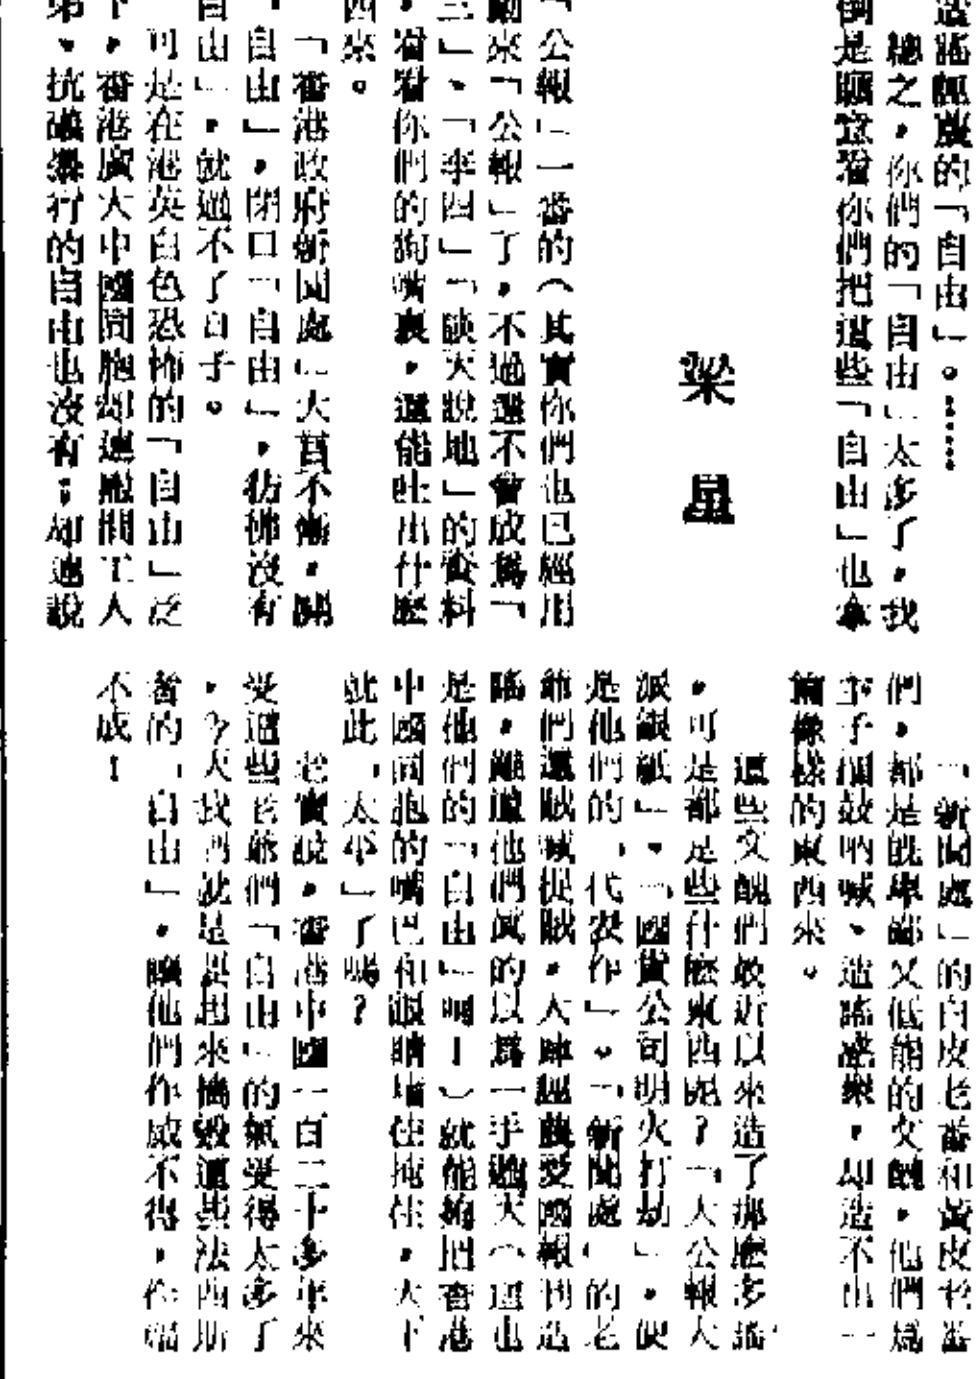 造謠誣衊的「自由」。……
總之，你們的「自由」太多了，我
倒是願意看你們把這些「自由」也拿
梁 星
「公報」一番的（其實你們也已經用
來「公報」了，不過還不會成為「
三」、「李四」「談天說地」的資料
，看看你們的狗嘴裏，還能吐出什麼
西來。
「香港政府新聞處」大言不慚，開
「自由」，閉口「自由」，彷彿沒有
自由」，就過不了日子。
可是在港英白色恐怖的「自由」泛
下，香港廣大中國同胞却連罷工人
弟，抗議暴行的自由也沒有；却連說
「新聞處」的白皮老番和黃皮老番
們，都是既卑鄙又低能的文醜，他們為
主子搖鼓吶喊、造謠惑衆，却造不出一
篇像樣的東西來。
這些文醜們最近以來造了那麽多謠
，可是都是些什麽東西呢？「大公報大
派銀紙」，「國貨公司明火打劫」，便
是他們的「代表作」。「新聞處」的老
爺們還賊喊捉賊，大肆誣衊愛國報刊造
謠，難道他們真的以為一手遮天（這也
是他們的「自由」啊！）就能夠把香港
中國同胞的嘴巴和眼睛堵住掩住，天下
就此「太平」了嗎？
老實說，香港中國一百二十多年來
受這些老爺們「自由」的氣受得太多了
，今天我們就是要起來搗毀這些法西斯
者的「自由」，讓他們作威不得，作福
不成！